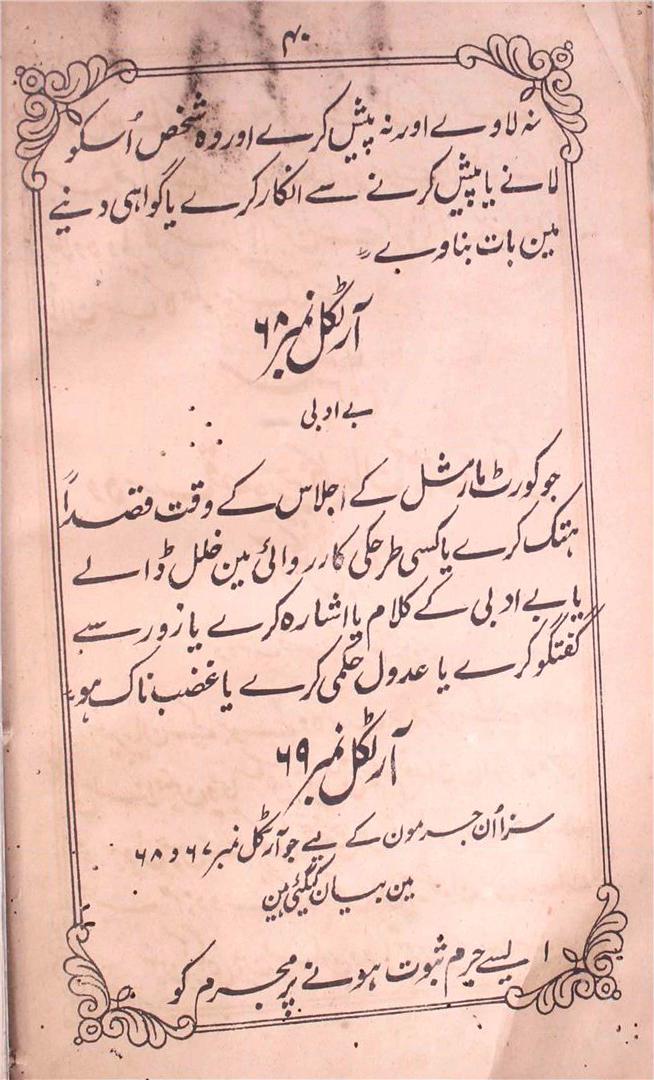 ۴۰
نہ لاوے اور نہ پیش کرے اور وہ شخص اُسکو
لانے یا پیش کرنے سے انکار کرے یا گواہی دینے
مین بات بناوے۔
آرٹکل نمبر ۶۸
بے ادبی
جو کورٹ مارشل کے اجلاس کے وقت قصداً
ہتک کرے یا کسی طرحکی کارروائی مین خلل ڈالے
یا بے ادبی کے کلام یا اشارہ کرے یا زور سے
گفتگو کرے یا عدول حکمی کرے یا غضب ناک ہو۔
آرٹکل نمبر ۶۹
سزا اُن جرمون کے لیے جو آرٹکل نمبر ۶۷ و ۶۸
مین بیان کیگئی ہین
ایسے جرم ثبوت ہونے پر مجرم کو